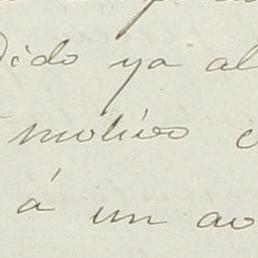 dido ya al
motivo
á un ao